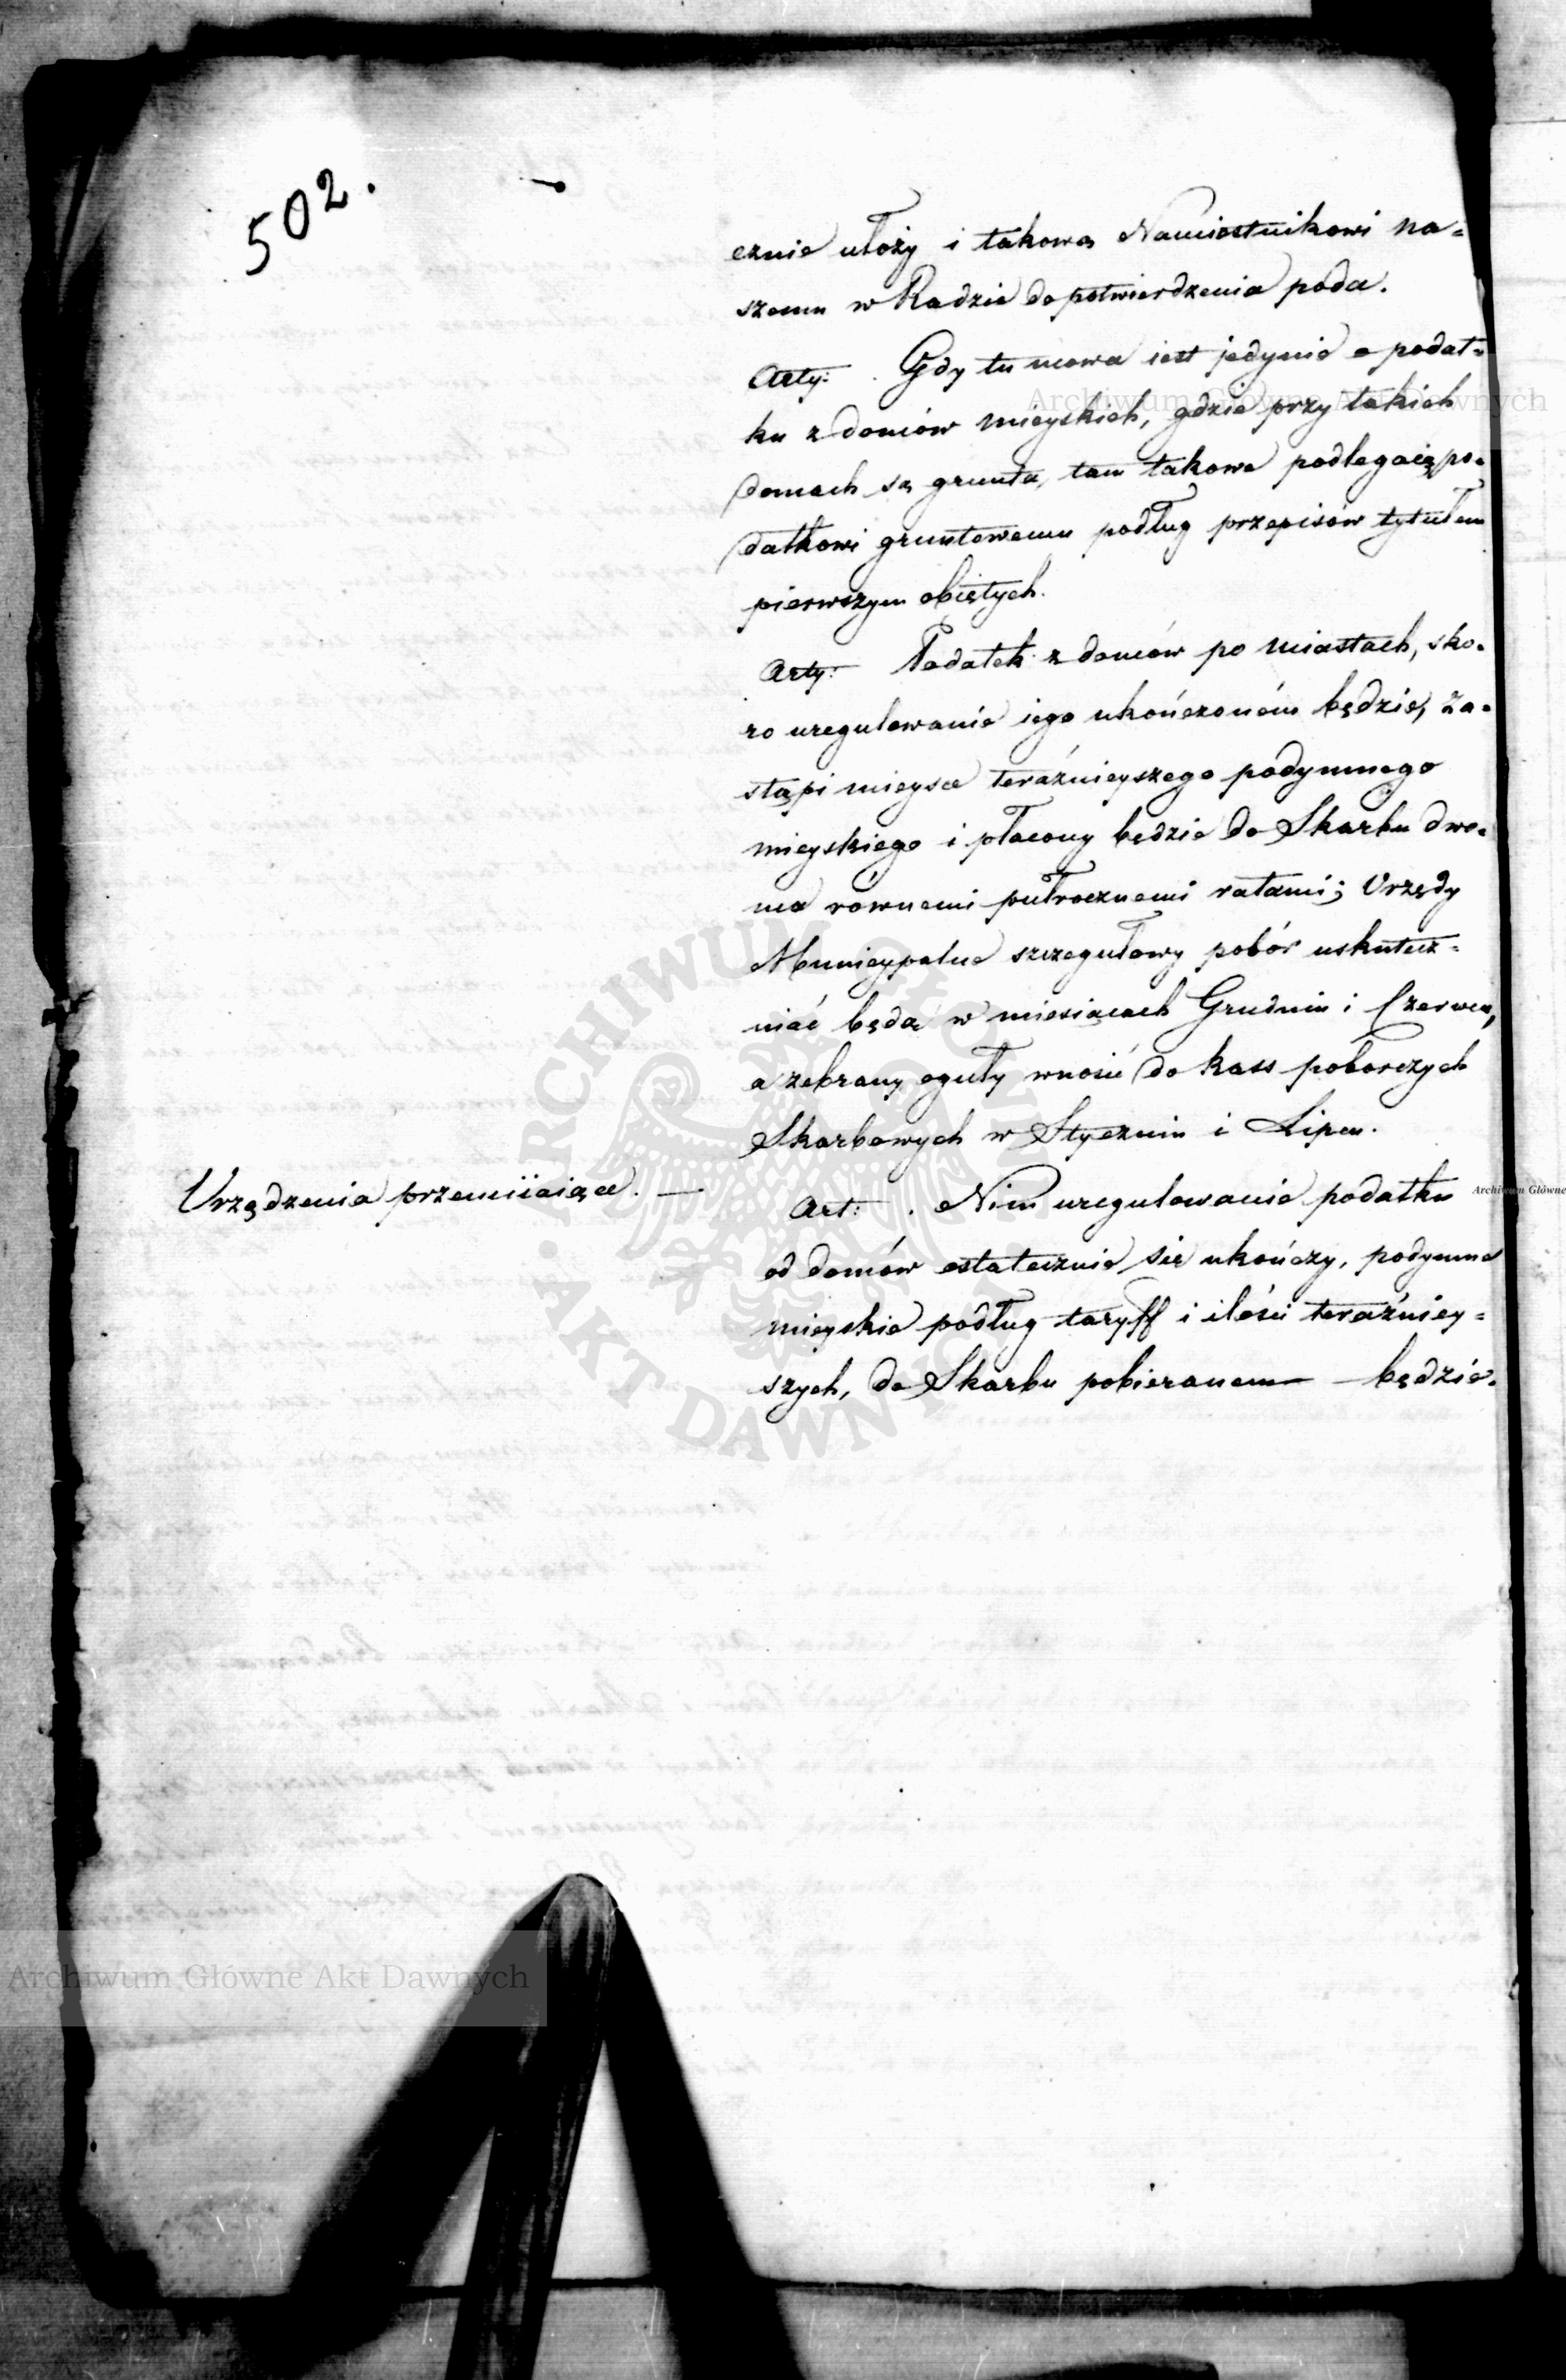 502.
cznie ułoży i takową Namiestnikowi na=
szemu w Radzie do potwierdzenia poda.
Arty: . Gdy tu mowa iest jedynie o podat=
ku z domów mieyskich, gdzie przy takich
domach są grunta, tam takowe podlegaią po=
datkowi gruntowemu podług przepisów tytułem
pierwszym obiętych.
Arty: Podatek z domów po miastach, sko=
ro uregulowanie iego ukończoném będzie, za=
stąpi mieysce teraźnieyszego podymnego
mieyskiego i płacony będzie do Skarbu dwo=
ma równemi pułrocznemi ratami; Urzędy
Municypalne szczegułowy pobór uskutecz=
niać będą w miesiącach Grudniu i Czerwcu,
a zebrany oguły wnosić do kass poborczych
Skarbowych w Styczniu i Lipcu.
Urządzenia przemiiaiące. —
Art: . Nim uregulowanie podatku
od domów ostatecznie się ukończy, podymne
mieyskie podług taryff i ilości teraźniey=
szych, do Skarbu pobieranem będzie.
Archiwum Główne Akt Dawnych
Archiwum Główne Akt Dawnych
Archiwum Główne
ARCHIWUM GŁÓWNE AKT DAWNYCH